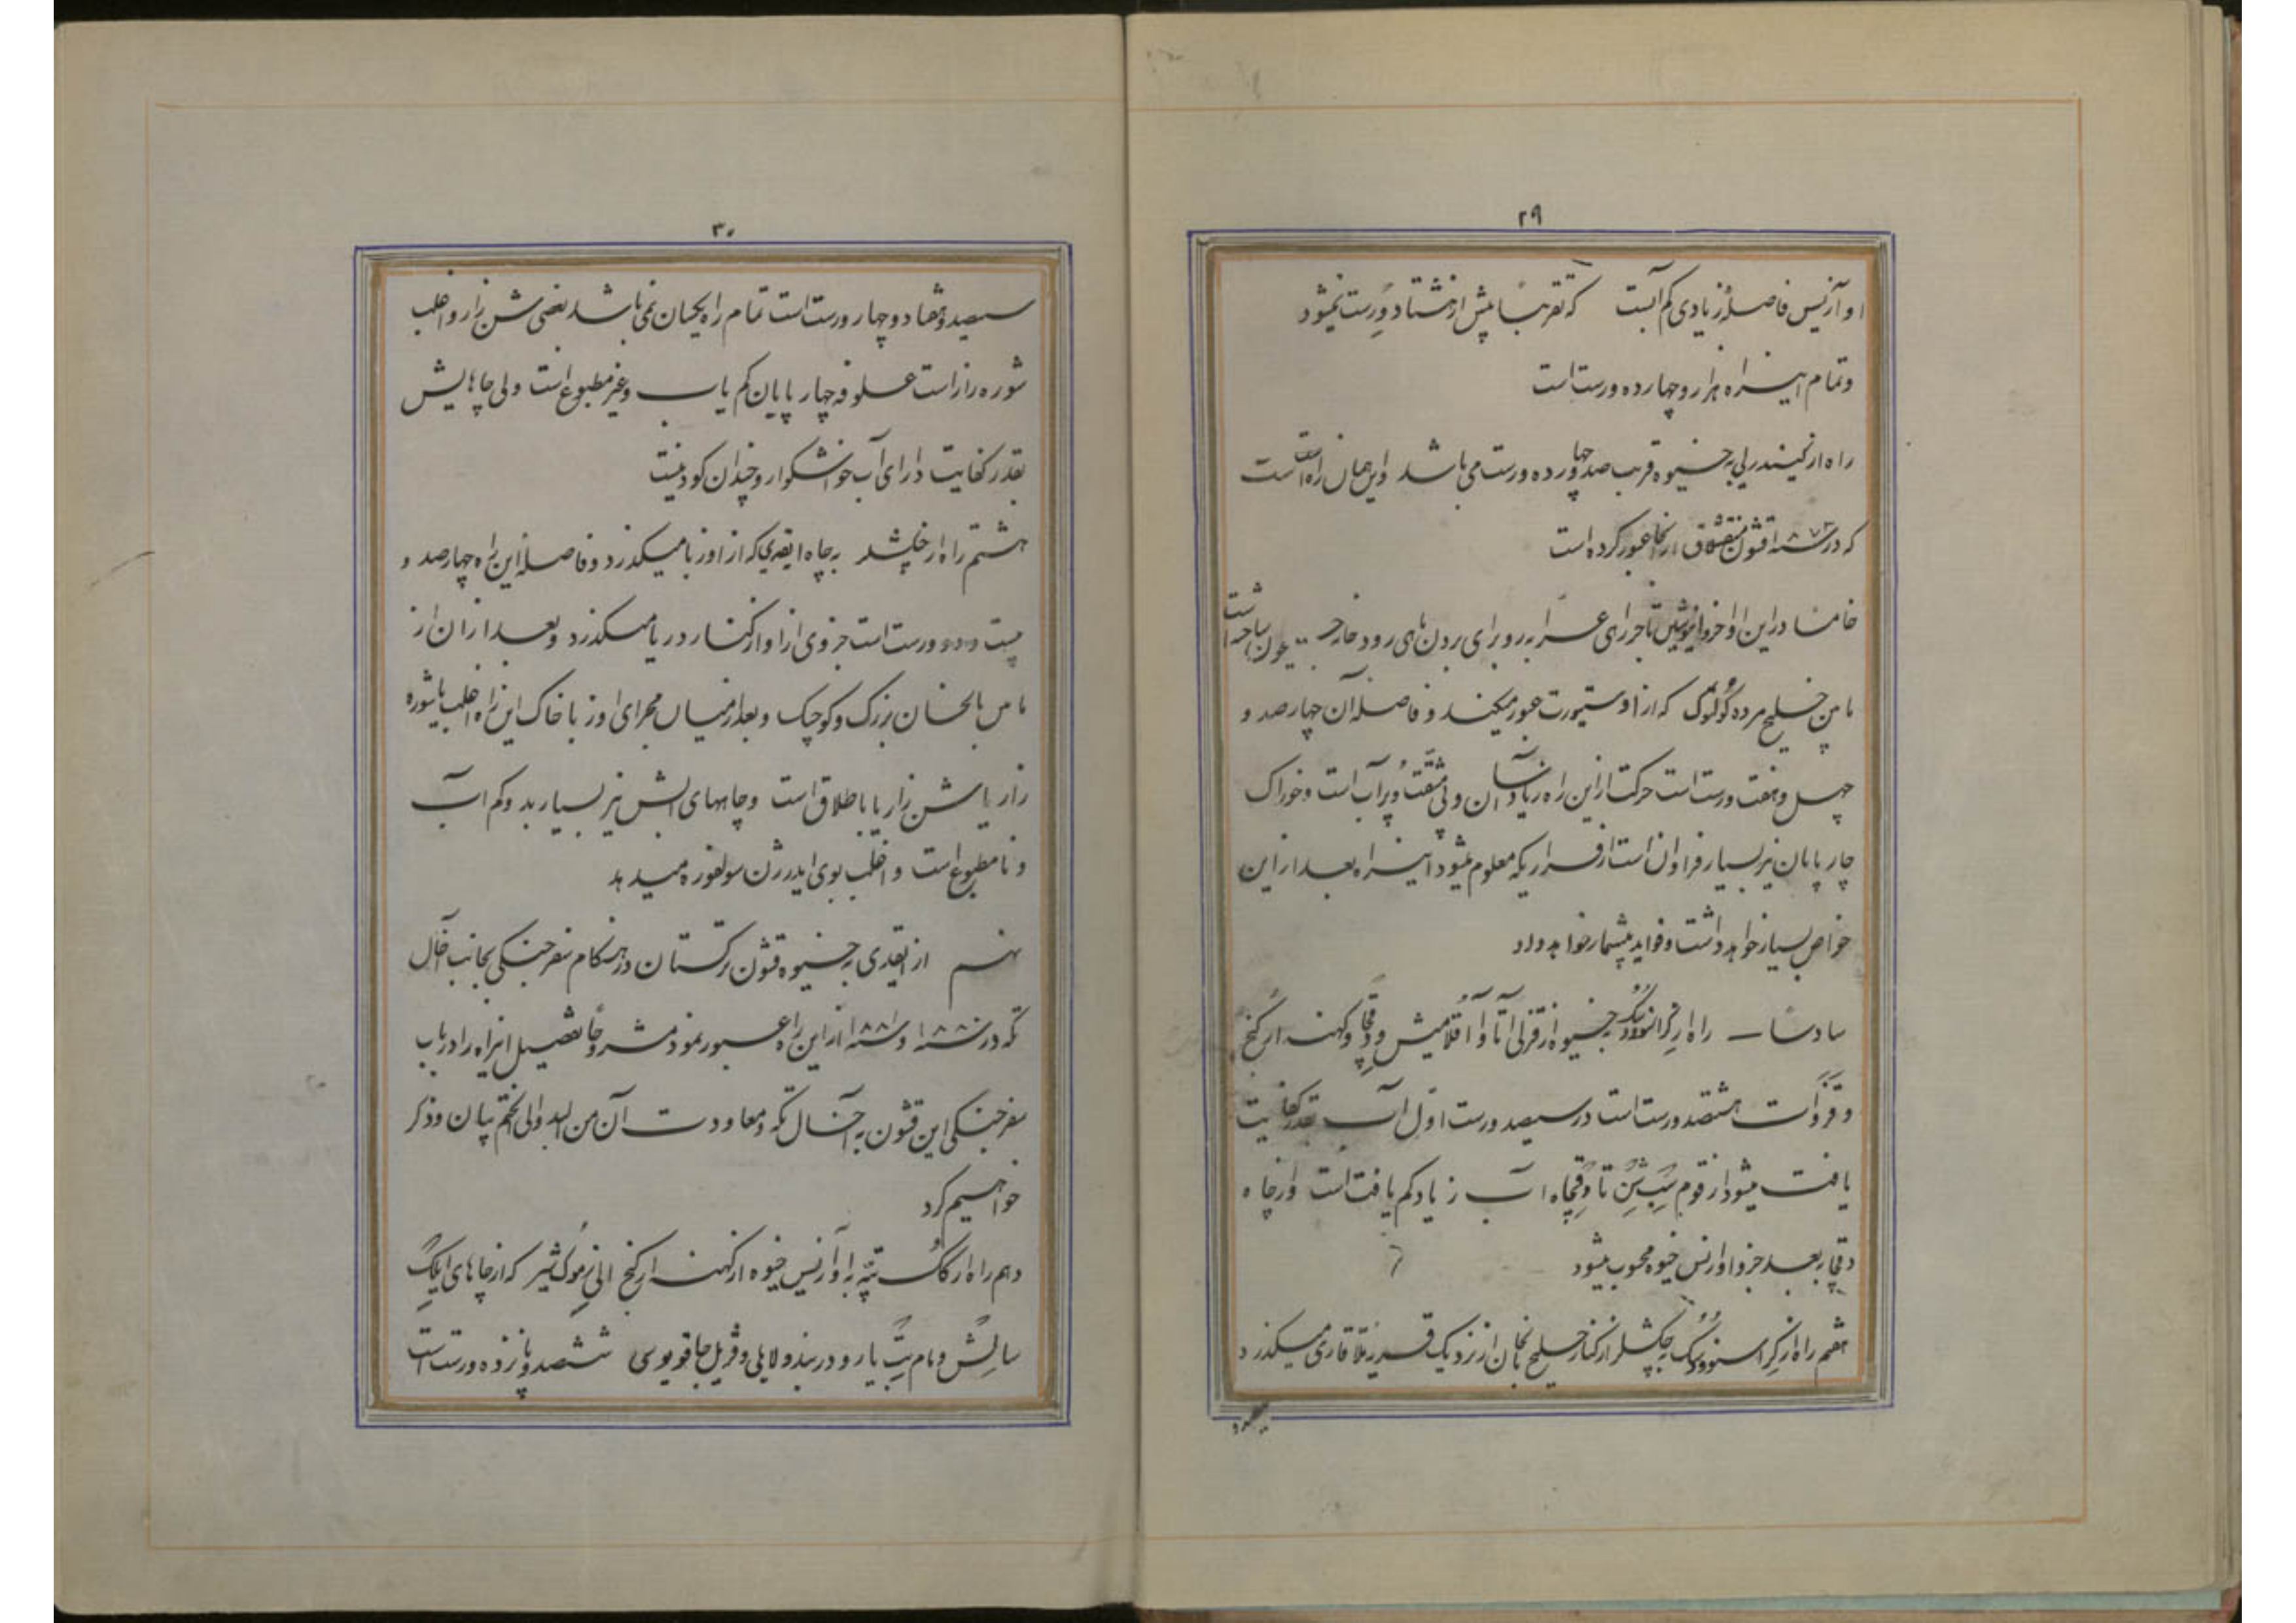 ۲۹
او آزیس فاصلهٔ زیادی کم آبست که تقریباً بیش از هشتاد ورست نمیشود
و تمام اینراه هزار و چهارده ورست است
راه از کیندرلی به خیوه قریب صد و چهارده ورست می باشد و این همان راه است
که در سنه ۱۸۷۳ قشون منقشلاق از آنجا عبور کرده است
خامسا در این اواخر تاجر راهی عرابه رو برای بردن بهای رود خانه جیحون ساخته است
مابین خلیج مرده کولتوک که از اوستیورت عبور میکند و فاصلهٔ آن چهار صد و
چهل و هفت ورست است حرکت از این راه زیاد آسان و بی مشقت و پر آب است و خوراک
چارپایان نیز بسیار فراوان است از قراریکه معلوم میشود اینراه بعد از این
خواص بسیار خواهد داشت و فواید بیشمار خواهد داد
سادسًا راه از کراسنوودسک به خیوه از قزل آتا و آقلامیش و دقچا و کهنه ارکنج
و قزوات هشتصد ورست است در سیصد ورست اول آب بقدر کفایت
یافت میشود از قوم سب شن تا دقچاه آب زیاد کم یافت است و از چاه
دقچا ببعد جزو اوازنس خیوه محسوب میشود
هفتم راه از کراسنوودسک به چکشلر از کنار خلیج بالخان از نزدیک میگذرد و
سیصد
۳۰
سیصد و هشتاد و چهار ورست است تمام راه یکسان نمی باشد بعضی شن زار و اغلب
شوره زار است علوفه چهار پایان کم یاب و غیر مطبوع است ولی چاهایش
بقدر کفایت دارای آب خوشگوار و چندان گود نیست
هشتم راه از چکشلر به چاه ایغدی که از اوزبا میگذرد و فاصلهٔ این راه چهار صد و
بیست و دو ورست است جزوی از او از کنار دریا میگذرد و بعد از آن از
مابین بالخان بزرگ و کوچک و بعد از میان مجرای اوزبا خاک این راه اغلب یا شوره
زار یا شن زار یا باطلاق است و چاههای آبش نیز بسیار بد و کم آب
و نامطبوع است و اغلب بوی ایدرژن سولفوره میدهد
نهم از ایغدی به خیوه قشون ترکستان در هنگام سفر جنگی بجانب آخال
تکه در سنه ۱۸۸۰ و سنه ۱۸۸۱ از این راه عبور نمود مشروحًا تفصیل اینراه را در باب
سفر جنگی این قشون به آخال تکه و معاودت آن من البدو الی الختم بیان و ذکر
خواهیم کرد
دهم راه از گاگ تپه به اوآزیس خیوه از کهنه ارکنج الی زموکشیر که از چاهای
سالش و مام یارو دربند و لایلی و قزیل جاقویوسی ششصد و پانزده ورست است